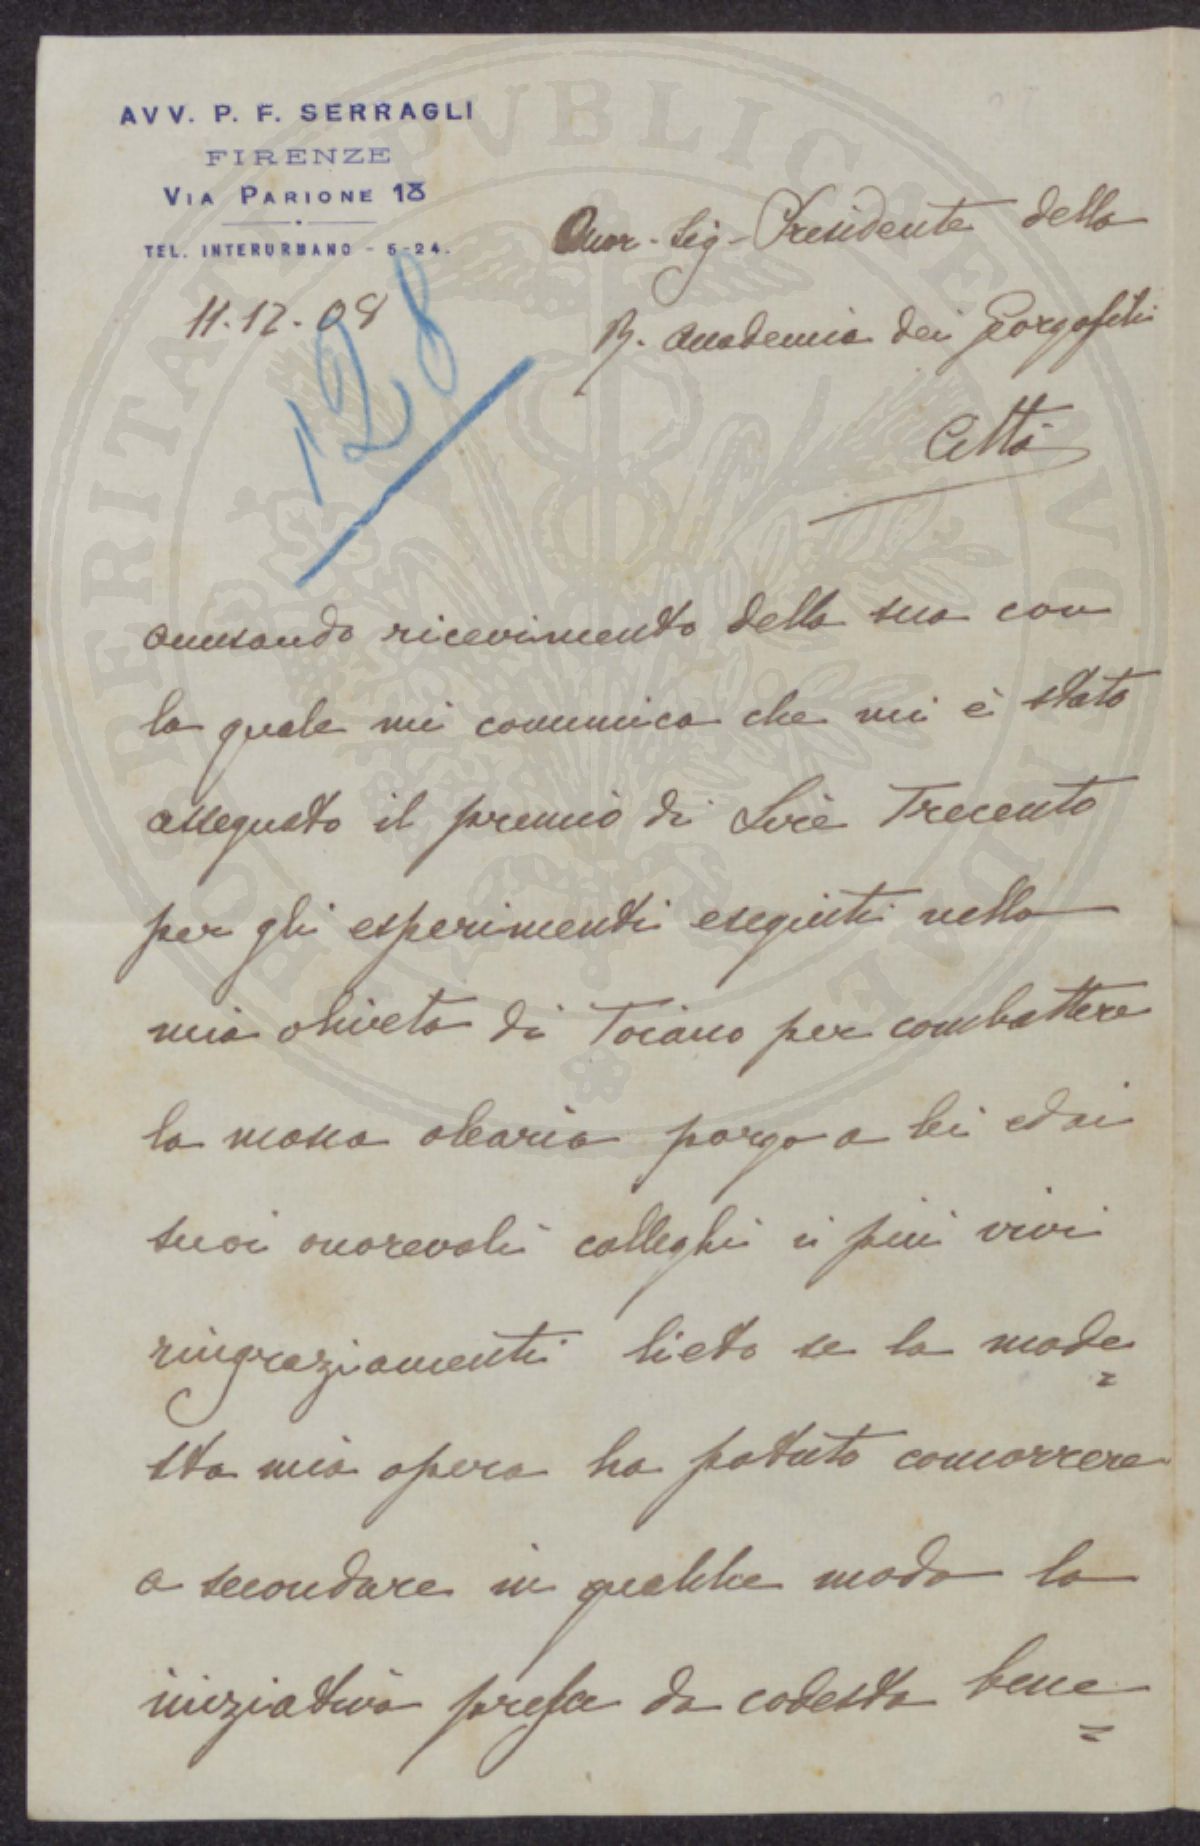 AVV. P. F. SERRAGLI
FIRENZE
VIA PARIONE 18
TEL. INTERURBANO - 5-24.
11.12.08
128
Onor. Sig. Presidente della
R. Accademia dei Georgofili
Città
Accusando ricevimento della sua con
la quale mi comunica che mi è stato
assegnato il premio di Lire Trecento
per gli esperimenti eseguiti nella
mia oliveta di Toiano per combattere
la mosca olearia porgo a lei ed ai
suoi onorevoli colleghi i più vivi
ringraziamenti lieto se la mode
=
sta mia opera ha potuto concorrere
a secondare in qualche modo la
iniziativa presa da codesta bene
=
PROSPERITATI PVBLICAE AVGENDAE